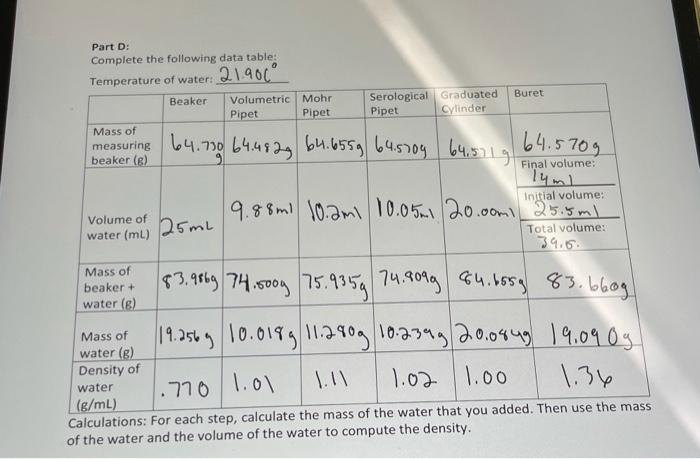 Part D:
Complete the following data table:
Temperature of water: 21.90C°
Beaker Volumetric Pipet Mohr Pipet Serological Pipet Graduated Cylinder Buret
Mass of measuring beaker (g) 64.730g 64.482g 64.655g 64.570g 64.571g 64.570g
Final volume:
14ml
Volume of water (mL) 25mL 9.88ml 10.2ml 10.05ml 20.00ml
Initial volume:
25.5ml
Total volume:
39.5.
Mass of beaker + water (g) 83.986g 74.500g 75.935g 74.809g 84.655g 83.660g
Mass of water (g) 19.256g 10.018g 11.280g 10.239g 20.084g 19.090g
Density of water (g/mL) .770 1.01 1.11 1.02 1.00 1.36
Calculations: For each step, calculate the mass of the water that you added. Then use the mass
of the water and the volume of the water to compute the density.